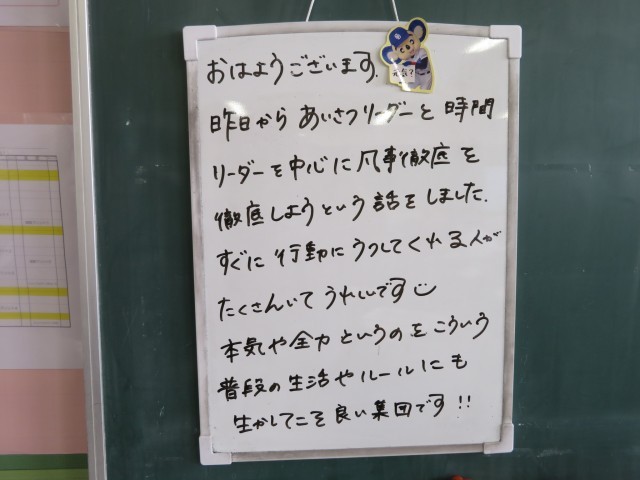 おはようございます.
元気?
昨日から あいさつリーダーと 時間
リーダーを中心に 凡事徹底 を
徹底しようという 話を しました.
すぐに 行動に うつしてくれる人が
たくさんいて うれしいです
本気や全力 というのを こういう
普段の 生活や ルールにも
生かしてこそ 良い 集団です!!